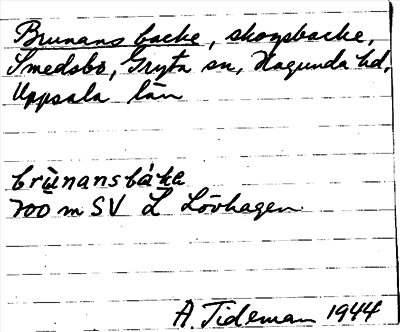 Brunans backe, skogsbacke,
Smedsbo, Gryta sn, Hagunda hd,
Uppsala län
brùnansbáka
700 m SV L Lövhagen
A. Tideman 1944